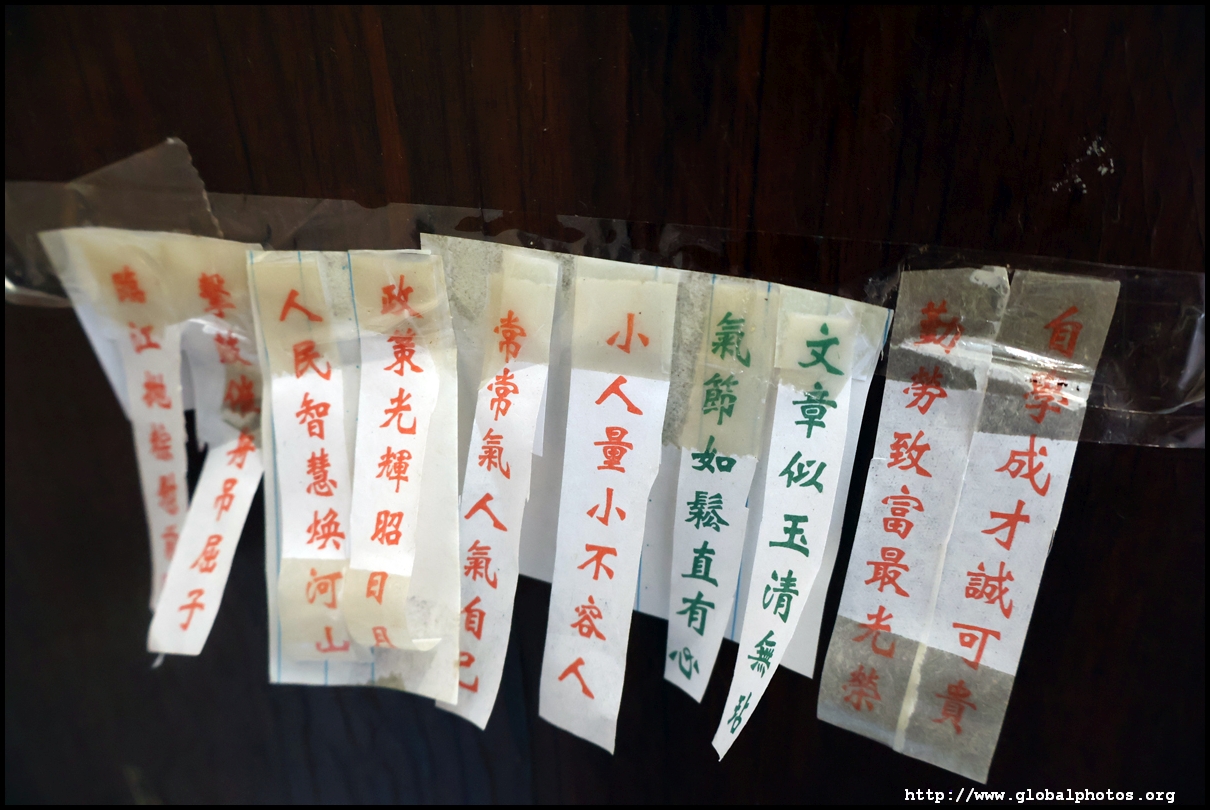 自學成才誠可貴
勤勞致富最光榮
文章似玉清無玷
氣節如鬆直有心
小人量小不容人
常常氣人氣自己
政策光輝昭日月
人民智慧煥河山
擊鼓催舟吊屈子
臨江
http://www.globalphotos.org